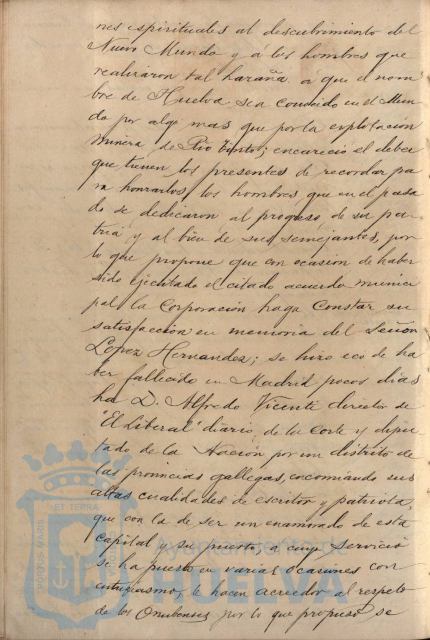 nes espirituales al descubrimiento del
Nuevo Mundo y á los hombres que
realizaron tal hazaña á que el nom
bre de Huelva sea conocido en el Mun
do por algo mas que por la explotación
minera de Rio Tinto; encareció el deber
que tienen los presentes de recordar pa
ra honrarlos los hombres que en el pasa
do se dedicaron al progreso de su pa
tria y al bien de sus semejantes, por
lo que propone que con ocasion de haber
sido ejecutado el citado acuerdo munici
pal la Corporación haga constar su
satisfacción en memoria del Señor
Lopez Hernandez; se hizo eco de ha
ber fallecido en Madrid pocos dias
ha D. Alfredo Vicenti director de
"El Liberal" diario de la Corte y dipu
tado de la Nación por un distrito de
las provincias gallegas, encomiando sus
altas cualidades de escritor y patriota,
que con la de ser un enamorado de esta
capital y su puerto, a cuyo servicio
se ha puesto en varias ocasiones con
entusiasmo, le hacen acreedor al respeto
de los Onubenses por lo que propuso se
PORTUS MARIS ET TERRAE
Ayuntamiento de
HUELVA